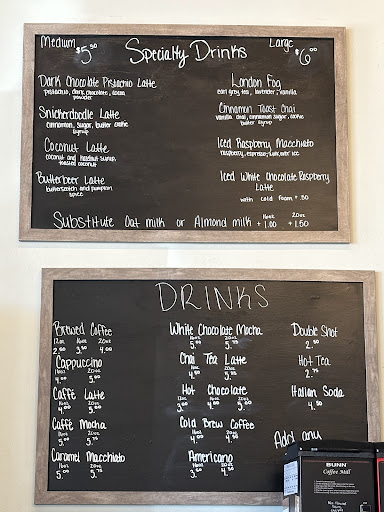 Medium $5.50 Specialty Drinks Large $6.00
Dark Chocolate Pistachio Latte
pistachio, dark chocolate, cocoa
powder
Snickerdoodle Latte
cinnamon, sugar, butter cookie
syrup
Coconut Latte
coconut and hazelnut syrup,
toasted coconut
Butterbeer Latte
butterscotch and pumpkin
spice
London Fog
earl grey tea, lavender, vanilla
Cinnamon Toast Chai
vanilla chai, cinnamon sugar, cookie
butter syrup
Iced Raspberry Macchiato
raspberry, espresso, over ice
Iced White Chocolate Raspberry
Latte
with cold foam + .50
16oz 20oz
Substitute Oat milk or Almond milk + 1.00 + 1.50
DRINKS
Brewed Coffee
12oz 16oz 20oz
2.50 4.00
Cappuccino
16oz 20oz
4.00 5.00
Caffé Latte
16oz 20oz
4.00 5.00
Caffé Mocha
16oz 20oz
5.00 5.75
Caramel Macchiato
16oz 20oz
5.00 5.75
White Chocolate Mocha
16oz 20oz
5.00 5.75
Chai Tea Latte
16oz 20oz
Hot Chocolate
12oz 16oz 20oz
3.00 4.00 5.00
Cold Brew Coffee
16oz 20oz
4.00
Americano
12oz 16oz 20oz
4.00 4.50
Double Shot
2.50
Hot Tea
2.75
Italian Soda
4.50
Add any
BUNN
Coffee Mill